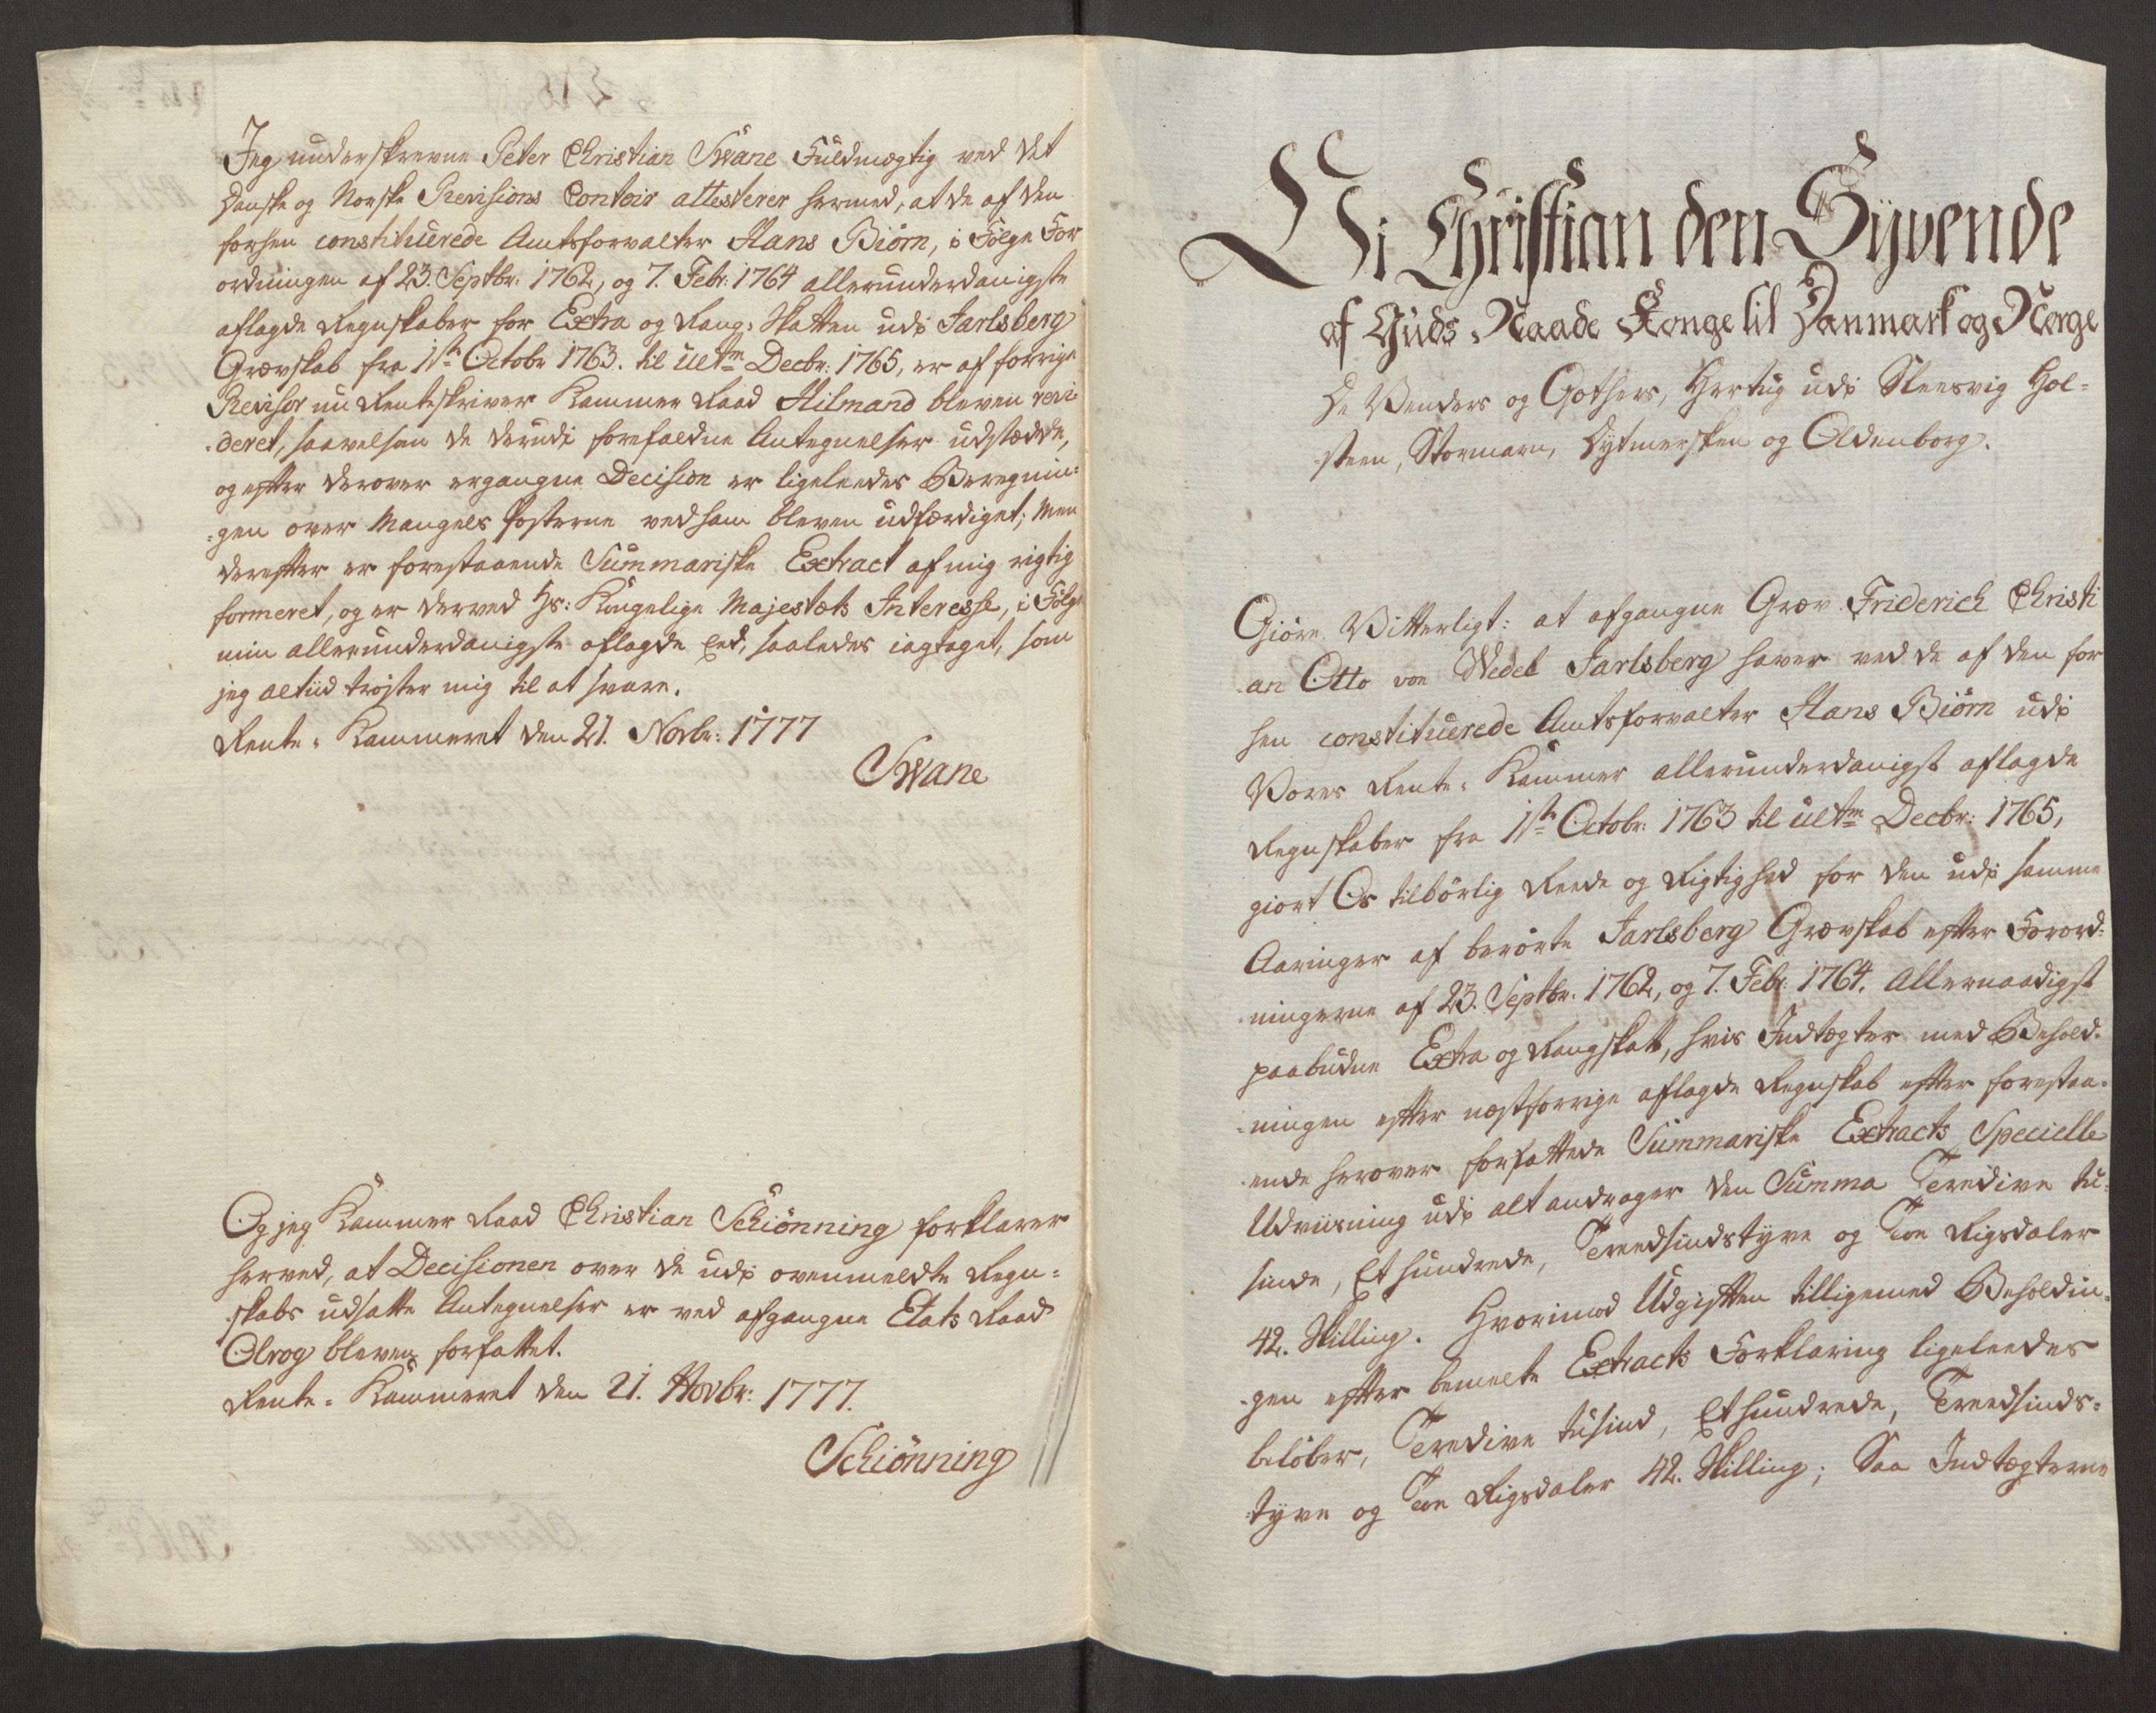 Jeg underskrevne Peter Christian Swane Fuldmægtig ved det
Danske og Norske Revisions Contoir attesterer hermed, at de af den
forhen constituerede Amtsforvalter Hans Biørn, i Følge For
ordningen af 23. Septbr: 1762, og 7. Febr: 1764 allerunderdanigste
aflagde Regnskaber for Extra og Rang-Skatten udi Jarlsberg
Grævskab fra 1ste Octobr 1763. til ultm Decbr: 1765, er af forrige
Revisor nu Renteskriver Kammer Raad Hilmand bleven revi-
-deret, saavelsom de derudi forefaldne Antegnelser udstædde,
og efter derover ergangne Decision er ligeleedes Beregnin-
-gen over Mangels Posterne ved ham bleven udfærdiget; Men
derefter er forestaaende Summariske Extract af mig rigtig
formeret, og er derved Hs: Kongelige Majestæts Interesse, i Følge
min allerunderdanigste aflagde Eed, saaledes iagtaget, som
jeg altiid trøster mig til at svare.
Rente-Kammeret den 21. Novbr: 1777
Swane
Og jeg Kammer Raad Christian Schiønning forklarer
herved, at Decisionen over de udi ovenmeldte Regn-
skabs udsatte Antegnelser er ved afgangne Etats Raad
Olrog bleven forfattet.
Rente-Kammeret den 21. Novbr: 1777.
Schiønning
Vi Christian den Syvende
af Guds Naade Konge til Danmark og Norge
De Venders og Gothers, Hertug udi Sleesvig Hol-
steen, Stormarn, Dytmersken og Oldenborg.
Giøre Vitterligt: at afgangne Græv Friderich Christi
an Otto von Wedel Jarlsberg haver ved de af den for
hen constituerede Amtsforvalter Hans Biørn udi
Vores Rente-Kammer allerunderdanigst aflagde
Regnskaber fra 1ste Octobr: 1763 til ultm Decbr: 1765,
giort Os tilbørlig Reede og Rigtighed for den udi samme
Aaringer af berørte Jarlsberg Grævskab efter Forord-
-ningerne af 23. Septbr: 1762, og 7. Febr: 1764. Allernaadigst
paabudne Extra og Rangskatt, hvis Indtægter med Behold-
-ningen efter næstforrige aflagde Regnskab efter forestaa-
-ende herover forfattede Summariske Extracts Specielle
Udviisning udi alt andrager den Summa Tredive tu-
sinde, Et hundrede, Treedsindstyve og Toe Rigsdaler
42. Skilling. Hvorimod Udgiften tilligemed Beholdin-
-gen efter bemelte Extracts Forklaring ligeleedes
beløber, Tredive tusind, Et hundrede, Treedsinds-
tyve og Toe Rigsdaler 42. Skilling; Saa Indtægterne